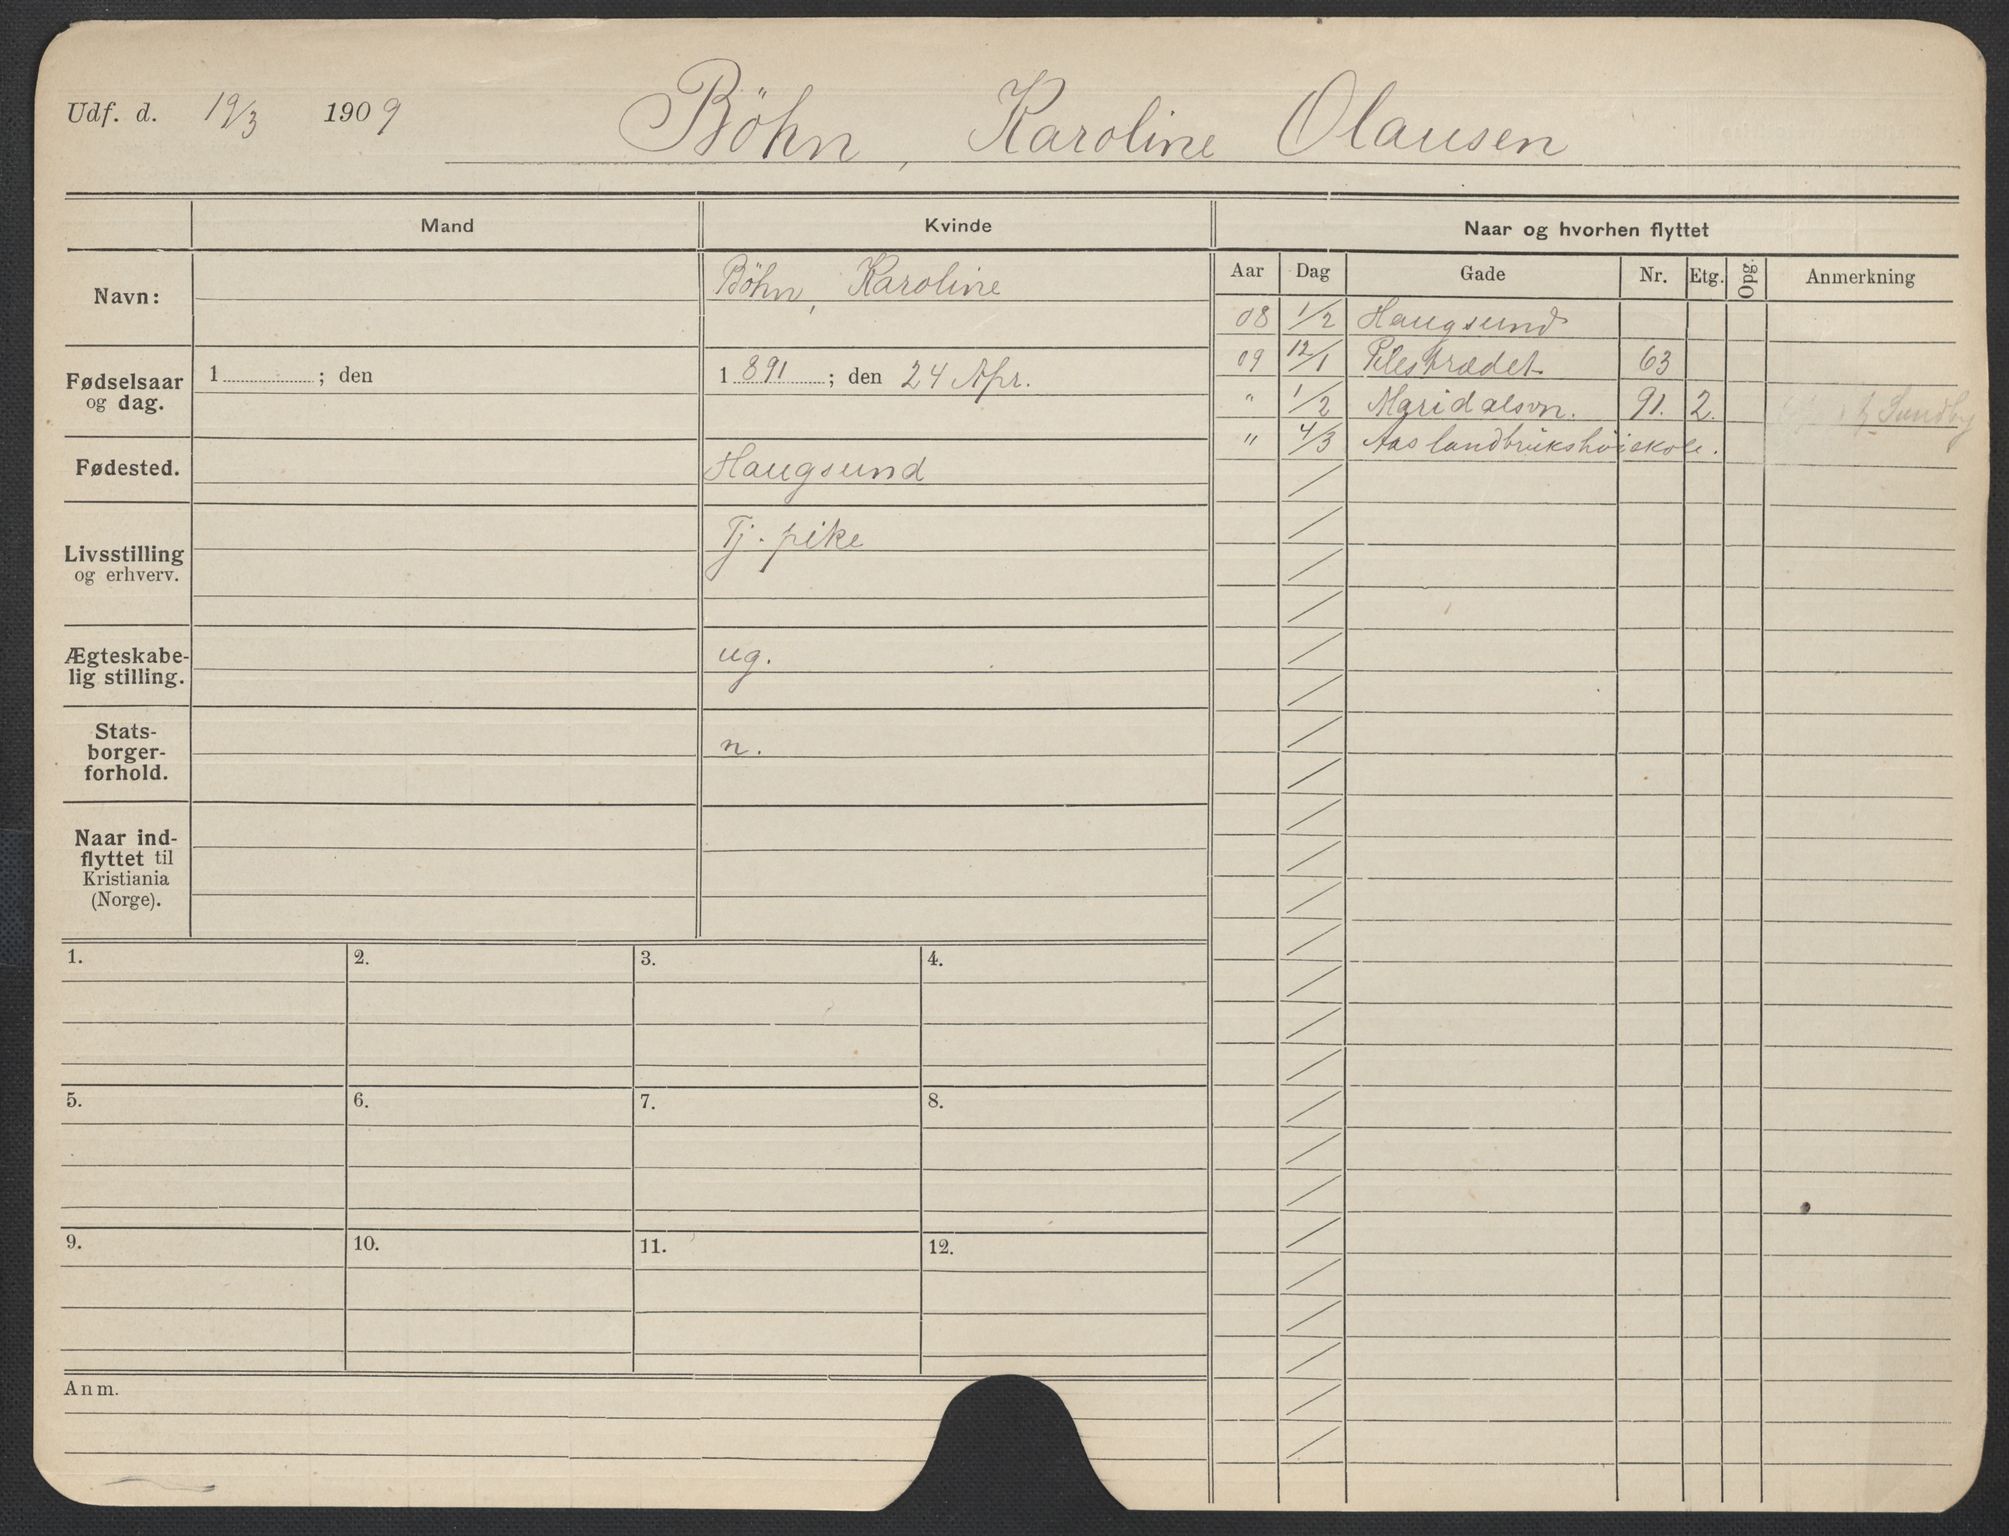 Udf. d. 19/3 1909 Böhn, Karoline Olausen
Mand Kvinde Naar og hvorhen flyttet
Aar Dag Gade Nr. Etg. Opg. Anmerkning
Navn: Böhn, Karoline
Fødselsaar og dag. 1 ; den 1891 ; den 24 Apr.
Fødested. Haugsund
Livsstilling og erhverv. Tj. pike
Ægteskabe-
lig stilling. ug.
Stats-
borger-
forhold. n.
Naar ind-
flyttet til
Kristiania
(Norge).
08 1/2 Haugsund
09 12/1 Pilestrædet 63
" 1/2 Maridalsvn. 91. 2. Sundby
" 4/3 Aas landbrukshöiskole.
1. 2. 3. 4.
5. 6. 7. 8.
9. 10. 11. 12.
Anm.